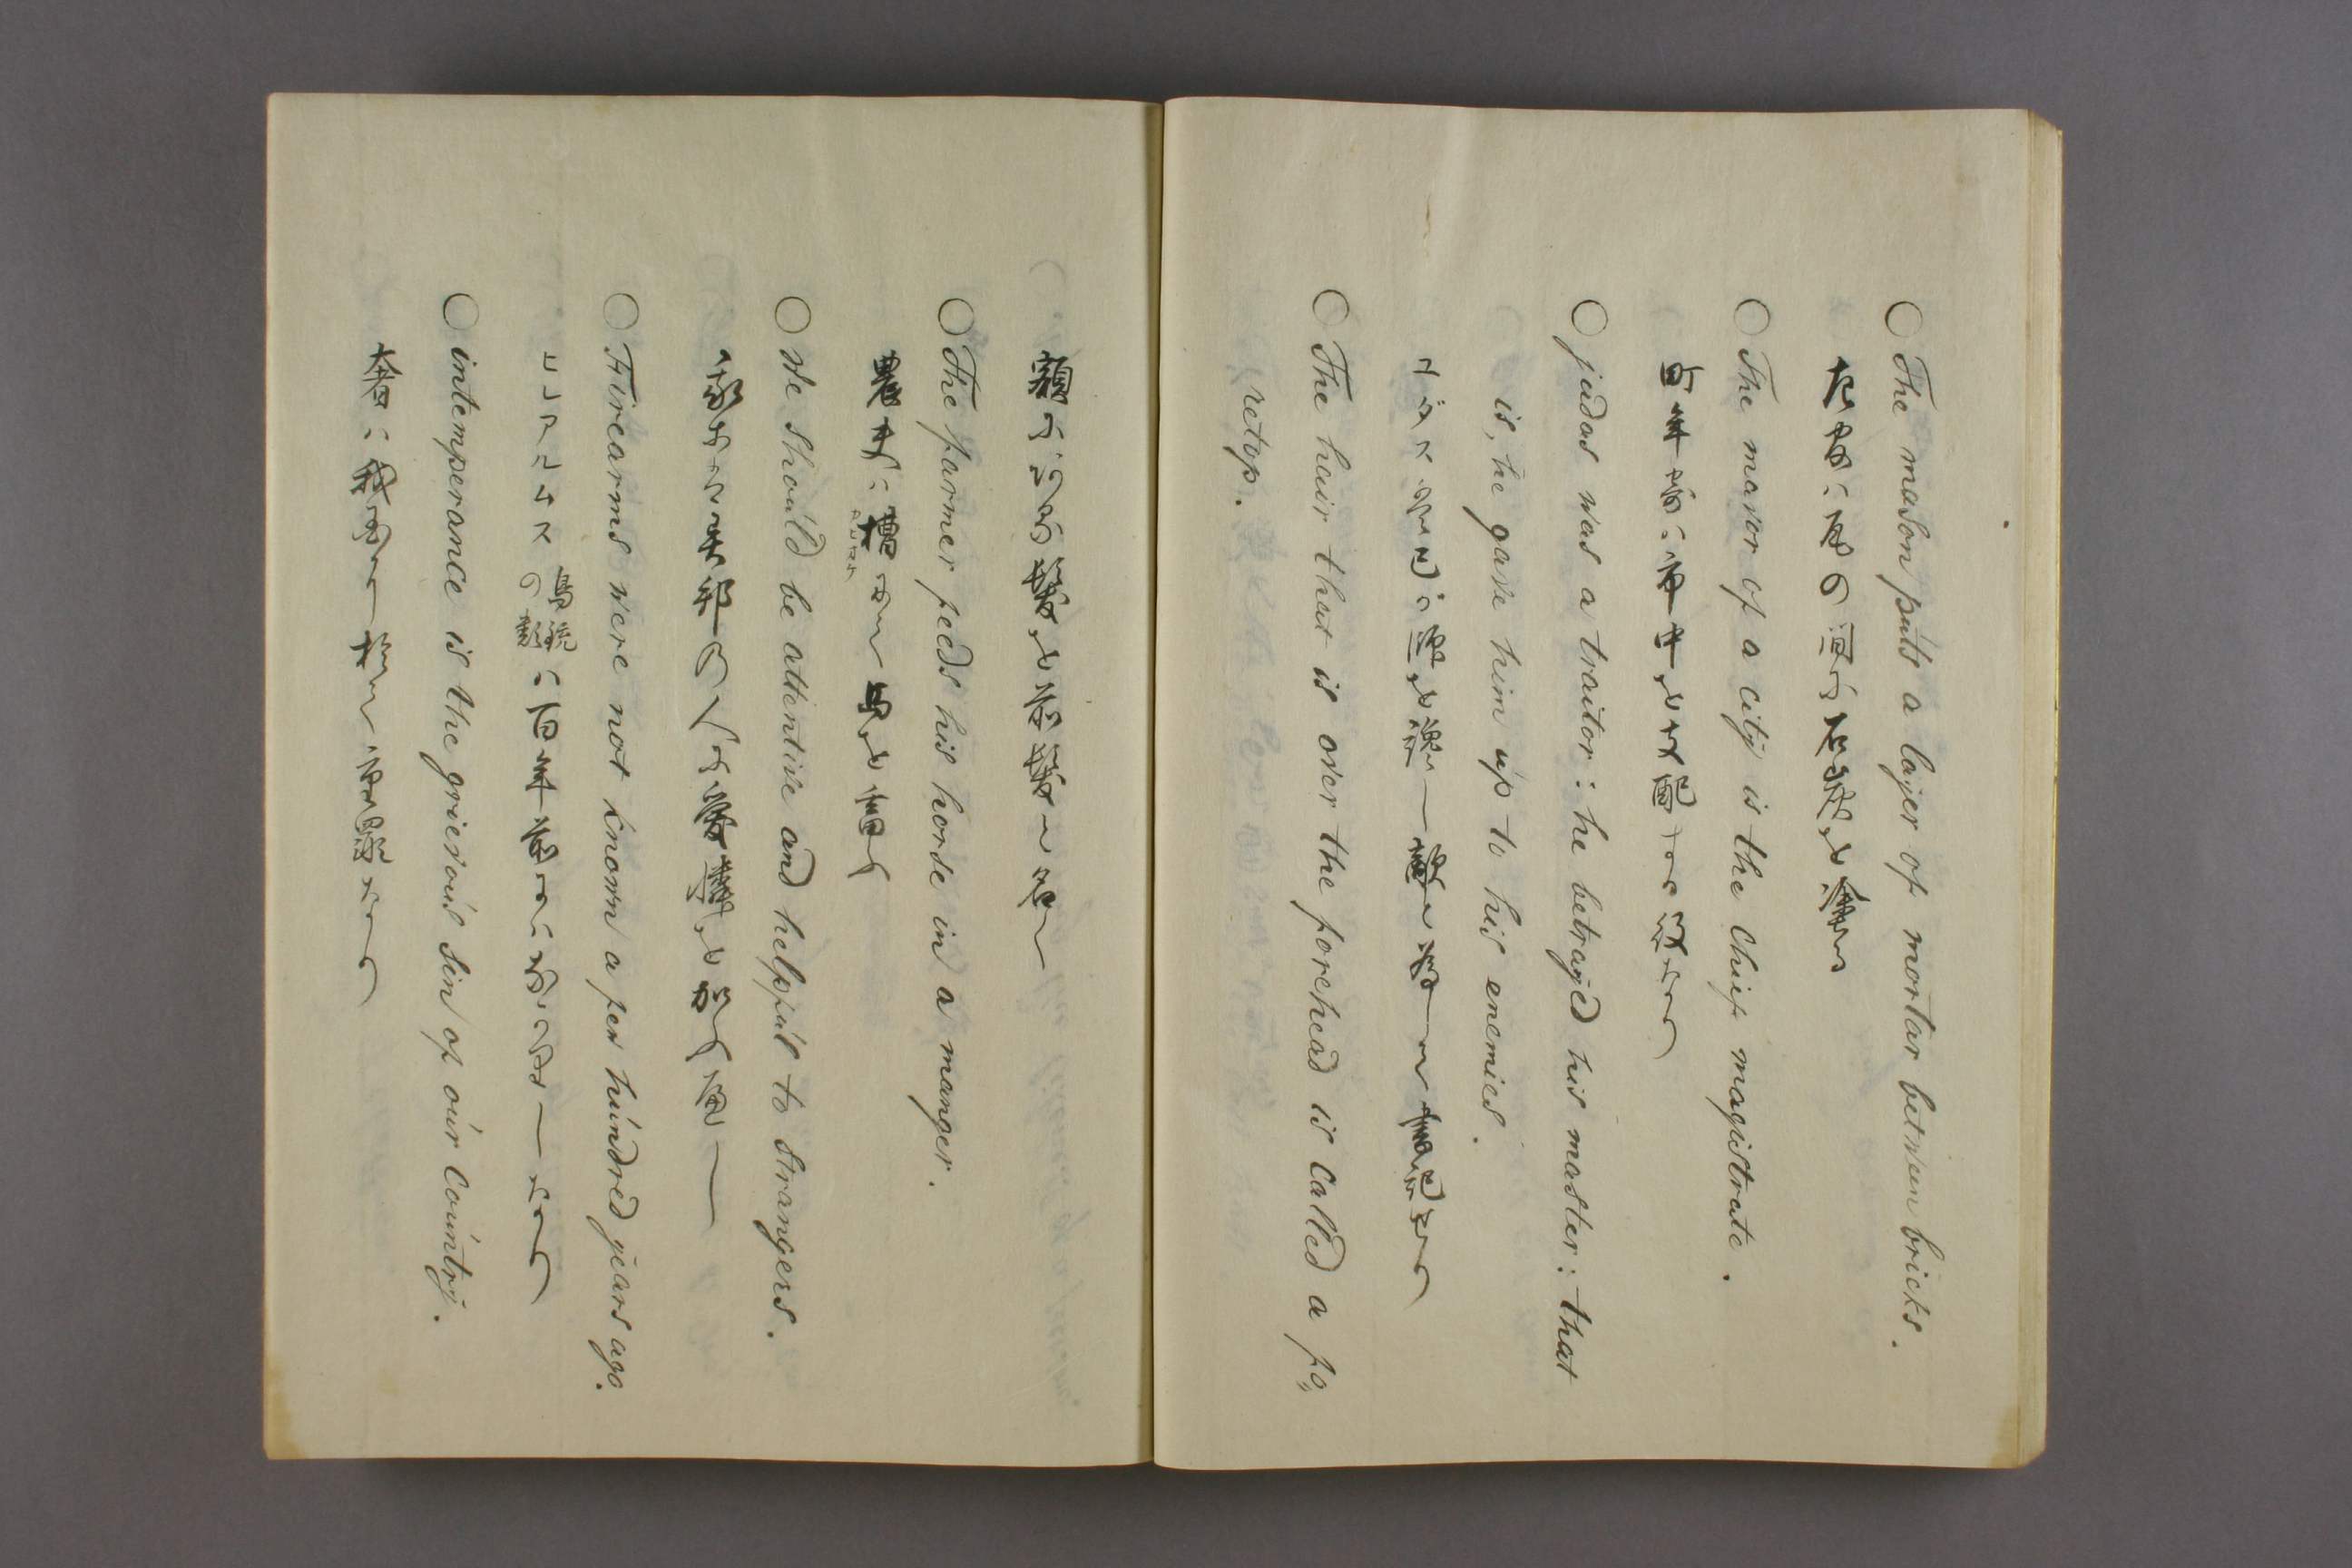 ○ The mason puts a layer of mortar between bricks.
左官ハ瓦の間に石灰を塗る
○ The mavor of a city is the chief magistrate.
町年寄ハ市中を支配する役なり
○ judas was a traitor: he betrayed his master: that
is, he gave him up to his enemies.
ユダス 己ハ師を 敵の為に なり
○ The hair that is over the forehead is called a fo„
retop.
額に ある髪を前髪と名く
○ The farmer feeds his horse in a manger.
農夫ハ槽にて馬を畜ふ
カヒヲケ
○ We should be attentive and helpful to strangers.
我等ハ異邦の人に愛憐を加ふ可し
○ Firearms were not known a few hundred years ago.
ヒレアルムス 鳥銃の類ハ百年前にハ なり
○ intemperance is the grievous sin of our country.
奢ハ我国に於て重罪なり